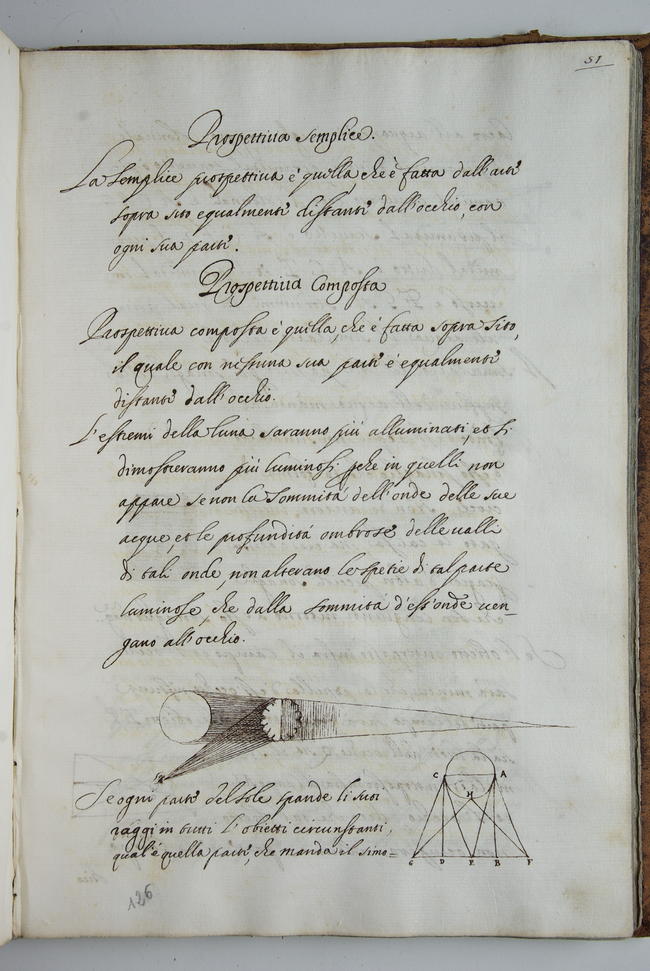 51
Prospettiua semplice.
La semplice prospettiua è quella, che è fatta dall'arte
sopra sito equalmente distante dall'occhio, con
ogni sua parte.
Prospettiua Composta
Prospettiua composta è quella, che è fatta sopra sito,
il quale con nessuna sua parte è equalmente
distante dall'occhio.
L'estremi della luna saranno più alluminati, et si
dimosteranno più luminosi, pche in quelli non
appare se non la sommità dell'onde delle sue
acque, et le profundità ombrose delle ualli
di tali onde, non alterano le spetie di tal parte
luminose, che dalla sommità d'ess'onde uen-
gano all'occhio.
Se ogni parte del sole spande li suoi
raggi in tutti l'obietti circunstanti,
qual'è quella parte, che manda il simo-
C A
H
G D E B F
126